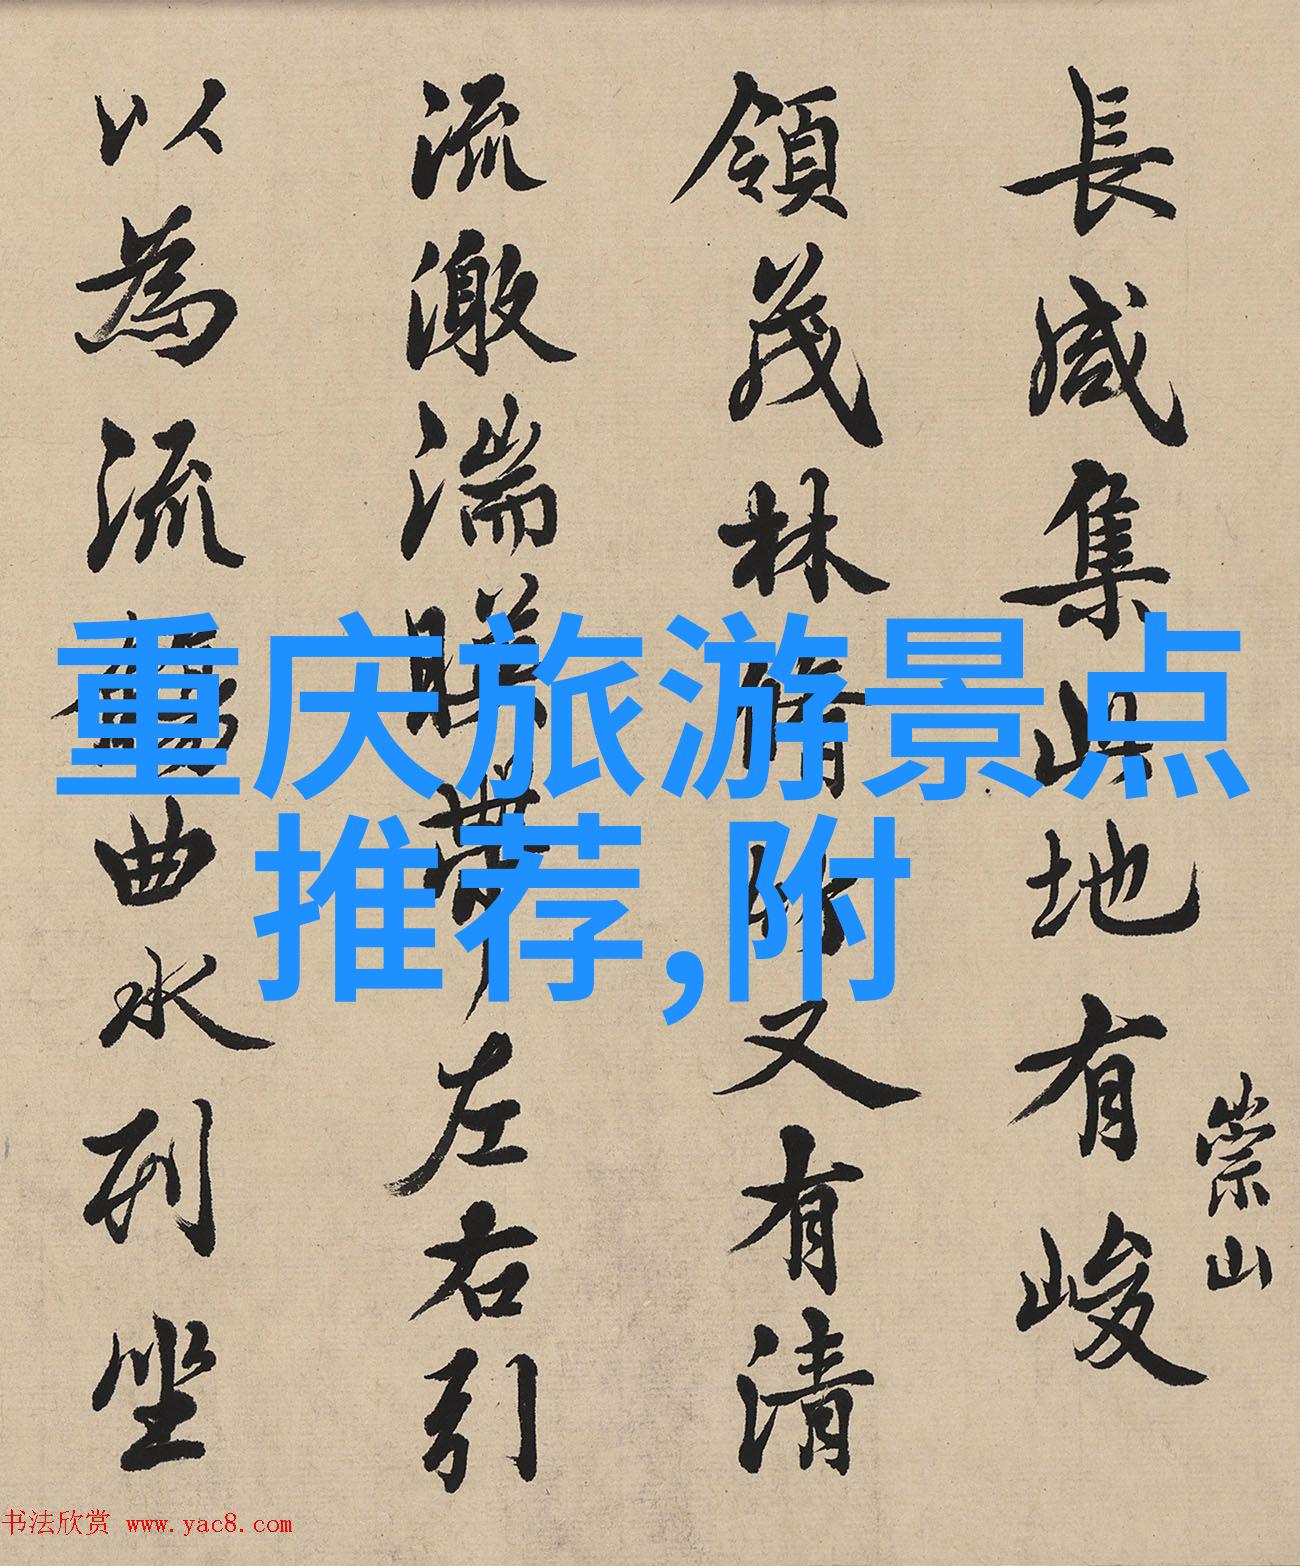 長咸集此地有峻
崇山
領茂林脩竹又有清
流激湍暎帶左右引
以為流觴曲水列坐
重庆旅游景点
推荐,附
书法欣赏 www.yac8.com